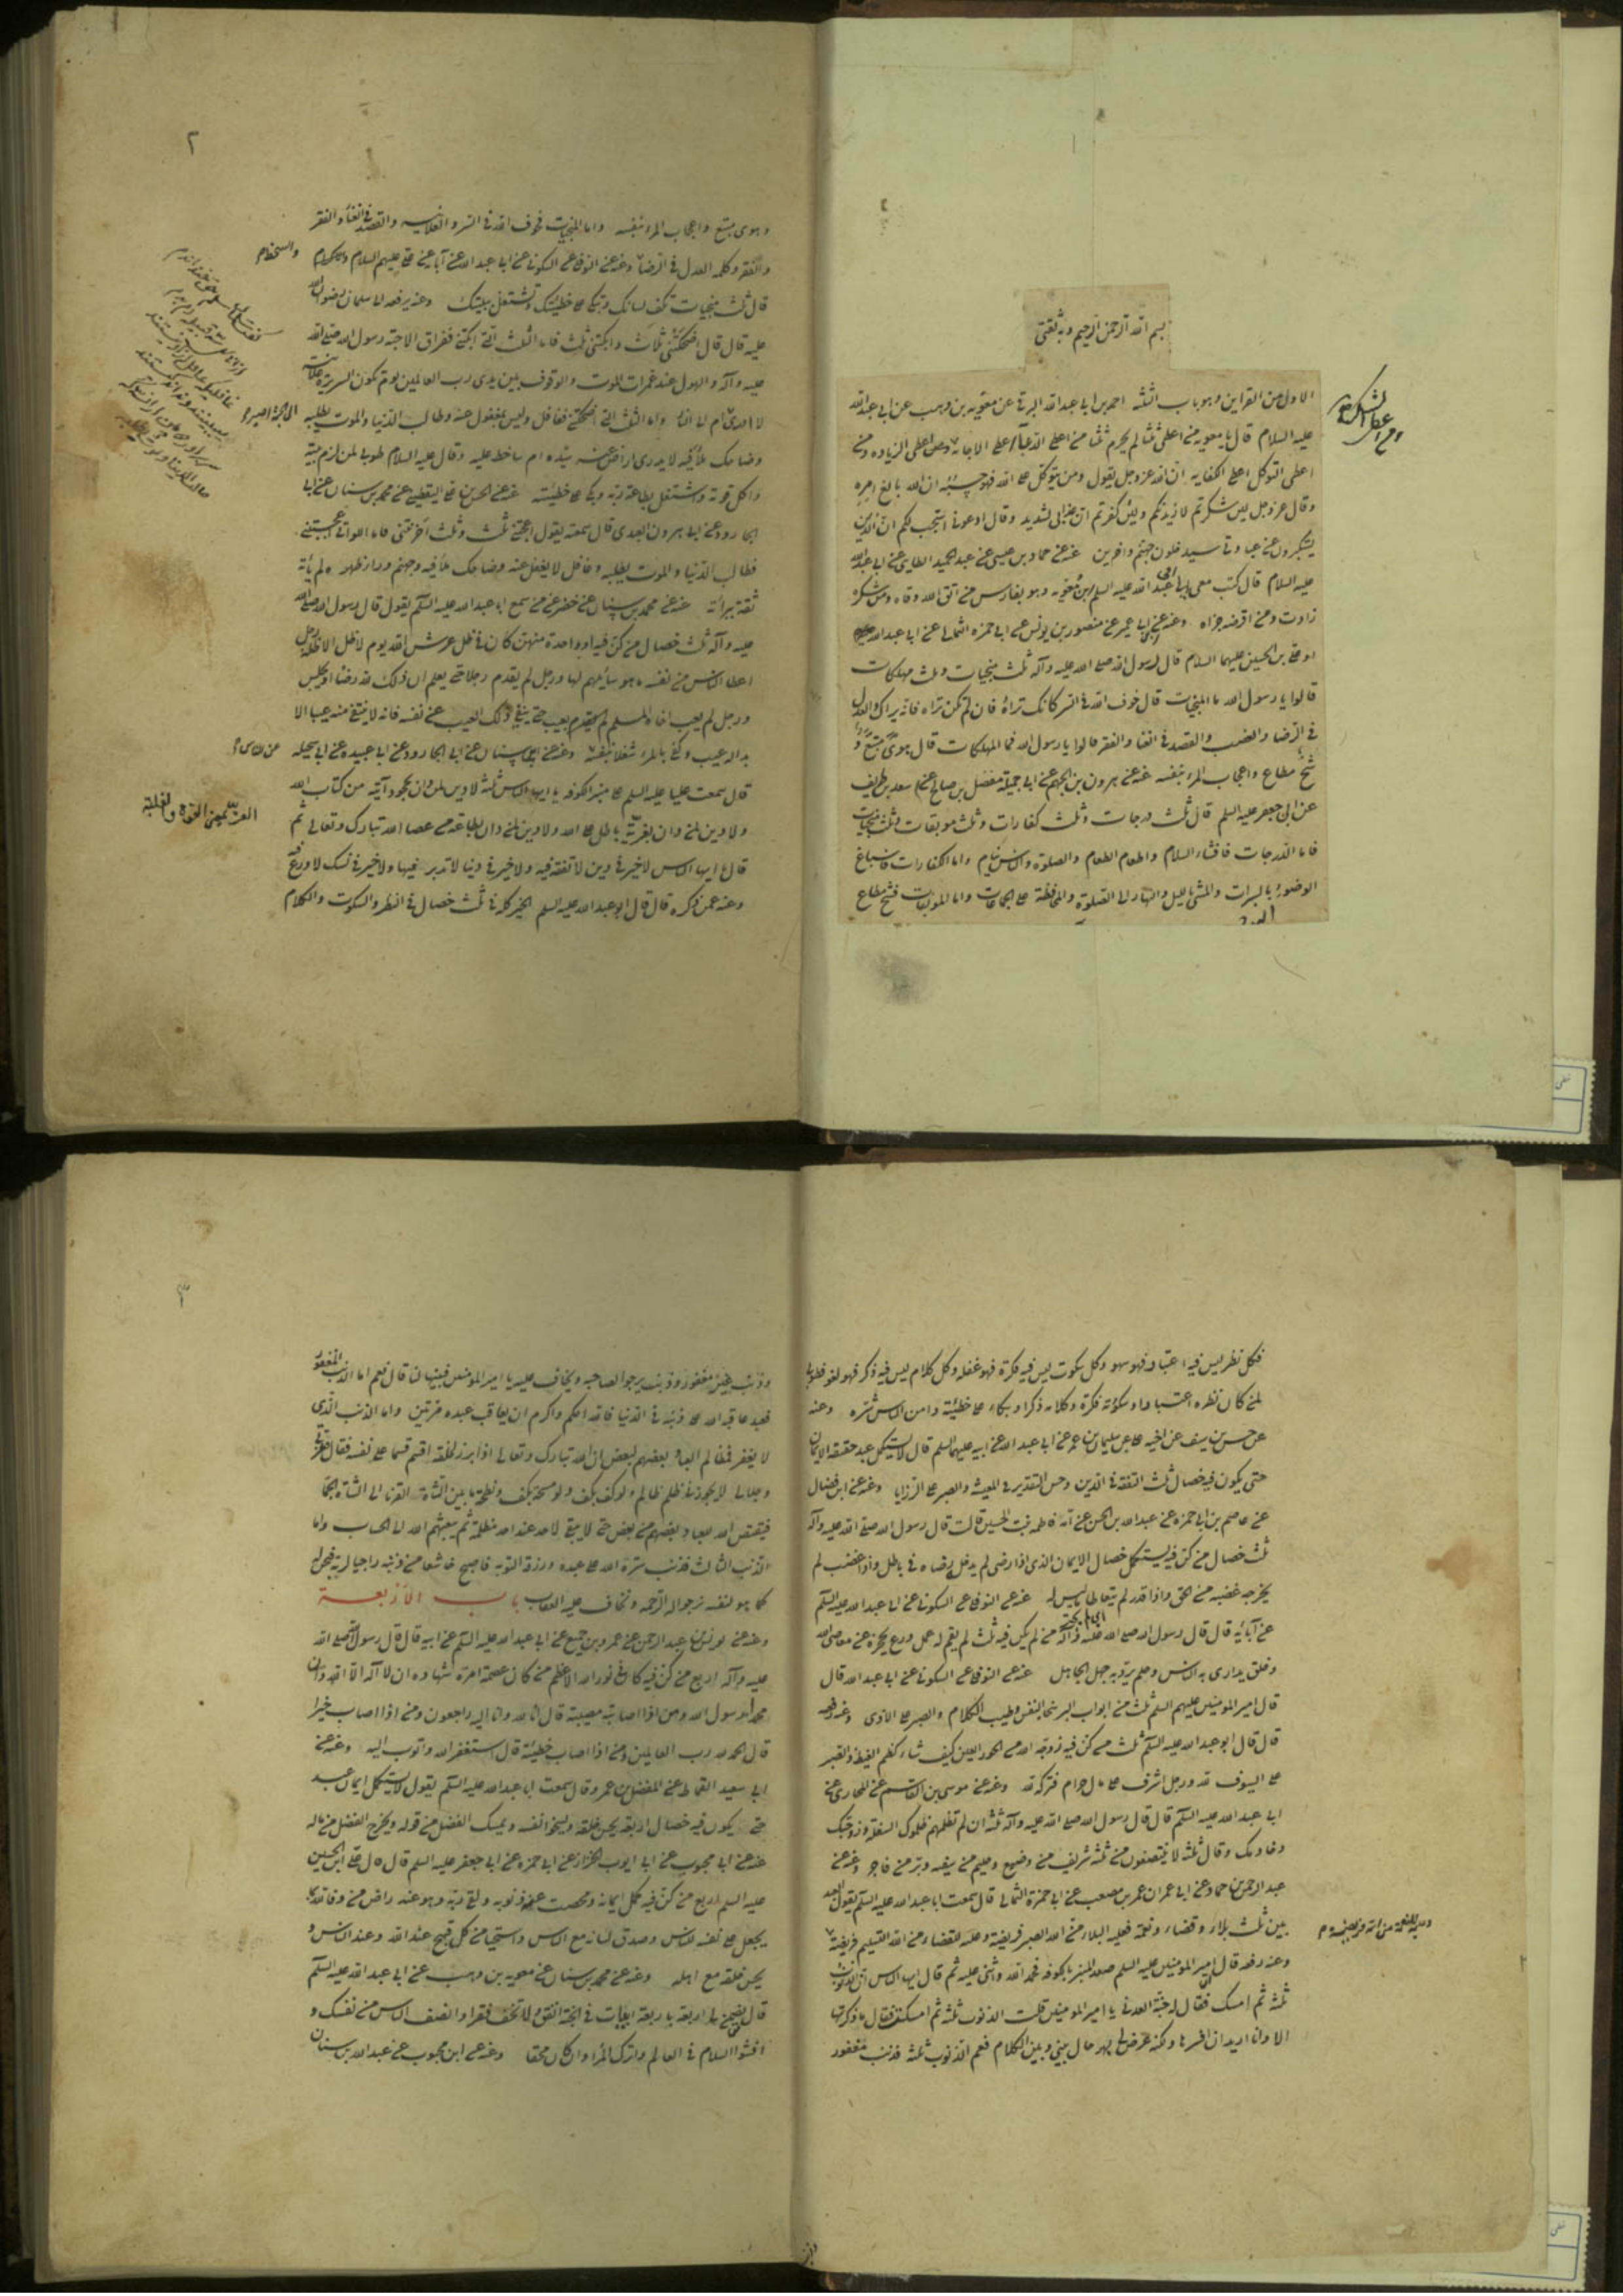 بسم الله الرحمن الرحيم وبه ثقتي
الاول من القراين وهو باب الثلثه احمد بن ابي عبد الله البرقي عن معويه بن وهب عن ابي عبد الله
عليه السلام قال يا معويه من اعطى ثلثا لم يحرم ثلثا من اعطى الدعاء اعطى الاجابة ومن اعطى الشكر اعطى الزياده ومن
اعطى التوكل اعطى الكفايه ان الله عز وجل يقول ومن يتوكل على الله فهو حسبه ان الله بالغ امره
وقال عز وجل لئن شكرتم لازيدنكم ولئن كفرتم ان عذابي لشديد وقال ادعوني استجب لكم ان الذين
يستكبرون عن عبادتي سيدخلون جهنم داخرين عنه عن حماد بن عيسى عن عبد الحميد الطايي عن ابي عبد الله
عليه السلام قال كتب معي الى عبد الله بن معويه وهو بفارس من اتقى الله وقاه ومن شكره
زاده ومن اقرضه جزاه وعنه عن ابن ابي عمير عن منصور بن يونس عن ابي حمزه الثمالي عن ابي عبد الله
او علي بن الحسين عليهما السلام قال قال رسول الله صلى الله عليه وآله ثلث منجيات وثلث مهلكات
قالوا يا رسول الله ما المنجيات قال خوف الله في السر كانك تراه فان لم تكن تراه فانه يراك والعدل
في الرضا والغضب والقصد في الغنا والفقر قالوا يا رسول الله فما المهلكات قال هوى متبع و
شح مطاع واعجاب المرء بنفسه عنه عن هرون بن الجهم عن ابي جميلة مفضل بن صالح عن سعد بن طريف
عن ابي جعفر عليه السلم قال ثلث درجات وثلث كفارات وثلث موبقات وثلث منجيات
فاما الدرجات فافشاء السلام واطعام الطعام والصلوة والناس نيام واما الكفارات فاسباغ
الوضوء بالسبرات والمشي بالليل والنهار الى الصلوة والمحافظة على الجماعات واما الموبقات فشح مطاع
٢
وهوى متبع واعجاب المرء بنفسه واما المنجيات فخوف الله في السر والعلانيه والقصد في الغنا والفقر
قال ثلث منجيات تكف لسانك وتبكي على خطيئتك وتشتغل ببيتك وعنه يرفعه الى سلمان رضوان الله
عليه قال قال اضحكتني ثلاث وابكتني ثلث فاما الثلث التي ابكتني ففراق الاحبة رسول الله صلى الله
عليه وآله والهول عند غمرات الموت والوقوف بين يدي رب العالمين يوم تكون السريرة علانية
وضاحك ملأ فيه لا يدري ارض عنه سيده ام ساخط عليه وقال عليه السلام طوبى لمن لزم بيته
واكل قوته واشتغل بطاعة ربه وبكى على خطيئته
فطالب الدنيا والموت يطلبه وغافل لا يغفل عنه وضاحك ملأ فيه وجهنم وراء ظهره ولم يأته
ثقة ببرائة عنه عن محمد بن سنان عن خضر عن من سمع ابا عبد الله عليه السلم يقول قال رسول الله صلى الله
عليه وآله ثلث خصال من كن فيه او واحدة منهن كان في ظل عرش الله يوم لا ظل الا ظله رجل
اعطا الناس من نفسه ما هو سائلهم لها ورجل لم يقدم رجلا حتى يعلم ان ذلك لله رضا او يحبس
ورجل لم يعب اخاه المسلم بعيب حتى ينفي ذلك العيب عن نفسه فانه لا ينتفي منه عيبا الا
بدا له عيب وكفى بالمرء شغلا بنفسه
قال سمعت عليا عليه السلم على منبر الكوفه يا ايها الناس ثلثة لا دين لمن دان بجحود آية من كتاب الله
ولا دين لمن دان بفرية باطل على الله ولا دين لمن دان بطاعة من عصا الله تبارك وتعالى ثم
قال ايها الناس لا خير في دين لا تفقه فيه ولا خير في دنيا لا تدبر فيها ولا خير في نسك لا ورع فيه
وعنه عمن ذكره قال قال ابو عبد الله عليه السلم الخير كله في ثلث خصال في النظر والسكوت والكلام
فكل نظر ليس فيه اعتبار فهو سهو وكل سكوت ليس فيه فكرة فهو غفله وكل كلام ليس فيه ذكر فهو لغو فطوبى
لمن كان نظره اعتبارا وسكوته فكرة وكلامه ذكرا وبكاء على خطيئته وامن الناس شره وعنه
عن حسن بن سيف عن اخيه علي عن سليمان بن عمر عن ابي عبد الله عن ابيه عليهما السلم قال لا يستكمل عبد حقيقة الايمان
حتى يكون فيه خصال ثلث التفقه في الدين وحسن التقدير في المعيشة والصبر على الرزايا وعنه عن ابن فضال
عن عاصم بن ابي حمزه عن عبد الله بن الحسن عن امه فاطمه بنت الحسين قالت قال رسول الله صلى الله عليه وآله
ثلث خصال من كن فيه يستكمل خصال الايمان الذي اذا رضي لم يدخله رضاه في باطل واذا غضب لم
يخرجه غضبه من الحق واذا قدر لم يتعاط ما ليس له عنه عن النوفلي عن السكوني عن ابي عبد الله عليه السلم
عن آبائه قال قال رسول الله صلى الله عليه وآله من لم يكن فيه ثلث لم يقم له عمل ورع يحجزه عن معاصي الله
وخلق يداري به الناس وحلم يرد به جهل الجاهل عنه عن النوفلي عن السكوني عن ابي عبد الله قال
قال امير المومنين عليهم السلم ثلث من ابواب البر سخا النفس وطيب الكلام والصبر على الاذى
قال قال ابو عبد الله عليه السلم ثلث من كن فيه زوجه الله من الحور العين كيف شاء كظم الغيظ والصبر
على السيوف لله ورجل اشرف على مال حرام فتركه لله وعنه عن موسى بن القاسم عن المحاربي عن
ابي عبد الله عليه السلم قال قال رسول الله صلى الله عليه وآله ثلثة ان لم تظلمهم ظلموك السفلة وزوجتك
وخادمك وقال ثلثة لا ينتصفون من ثلثة شريف من وضيع وحليم من سفيه وبر من فاجر وعنه عن
عبد الرحمن بن حماد عن ابي عمران عمر بن مصعب عن ابي حمزة الثمالي قال سمعت ابا عبد الله عليه السلم يقول العبد
بين ثلث بلاء وقضاء ونعمة فعليه للبلاء من الله الصبر فريضة وعليه للقضاء من الله التسليم فريضة
وعنه رفعه قال امير المومنين عليه السلم صعد المنبر بالكوفه فحمد الله واثنى عليه ثم قال ايها الناس ان الذنوب
ثلثة ثم امسك فقال له حبة العرني يا امير المومنين قلت الذنوب ثلثة ثم امسكت فقال ما ذكرتها
الا وانا اريد ان افسرها ولكنه عرض لي بهر حال بيني وبين الكلام نعم الذنوب ثلثة فذنب مغفور
٣
وذنب غير مغفور وذنب يرجو لصاحبه ويخاف عليه يا امير المومنين فبينها لنا قال نعم اما الذنب المغفور
فعبد عاقبه الله على ذنبه في الدنيا فالله احكم واكرم ان يعاقب عبده مرتين واما الذنب الذي
لا يغفر فظالم العباد بعضهم لبعض ان الله تبارك وتعالى اذا برز لخلقه اقسم قسما على نفسه فقال وعزتي
وجلالي لا يجوزني ظلم ظالم ولو كف بكف ولو مسحة بكف ونطحة ما بين الشاة القرنا الى الشاة الجما
فيقتص الله للعباد بعضهم من بعض حتى لا يبقى لاحد عند احد مظلمة ثم يبعثهم الله الى الحساب واما
الذنب الثالث فذنب ستره الله على عبده ورزقه التوبه فاصبح خاشعا من ذنبه راجيا لربه فنحن له
كما هو لنفسه نرجو له الرحمه ونخاف عليه العقاب باب الاربعة
وعنه عن يونس بن عبد الرحمن عن عمرو بن جميع عن ابي عبد الله عليه السلم عن ابيه قال قال رسول الله صلى الله
عليه وآله اربع من كن فيه كان في نور الله الاعظم من كان عصمة امره شهادة ان لا اله الا الله وان
محمدا رسول الله ومن اذا اصابته مصيبة قال انا لله وانا اليه راجعون ومن اذا اصاب خيرا
قال الحمد لله رب العالمين ومن اذا اصاب خطيئة قال استغفر الله واتوب اليه وعنه عن
ابي سعيد القماط عن المفضل بن عمر وقال سمعت ابا عبد الله عليه السلم يقول لا يستكمل ايمان عبد
حتى يكون فيه خصال اربعة يحسن خلقه ويسخو نفسه ويمسك الفضل من قوله ويخرج الفضل من ماله
عنه عن ابن محبوب عن ابي ايوب الخزاز عن ابي حمزه عن ابي جعفر عليه السلم قال قال علي ابن الحسين
عليه السلم اربع من كن فيه كمل ايمانه ومحصت عنه ذنوبه ولقي ربه وهو عنه راض من وفا لله بما
يجعل على نفسه للناس وصدق لسانه مع الناس واستحيا من كل قبيح عند الله وعند الناس و
يحسن خلقه مع اهله وعنه عن محمد بن سنان عن معويه بن وهب عن ابي عبد الله عليه السلم
قال من يضمن لي اربعة باربعة ابيات في الجنة انفق ولا تخف فقرا وانصف الناس من نفسك و
افشوا السلام في العالم واترك المراء وان كان محقا وعنه عن ابن محبوب عن عبد الله بن سنان